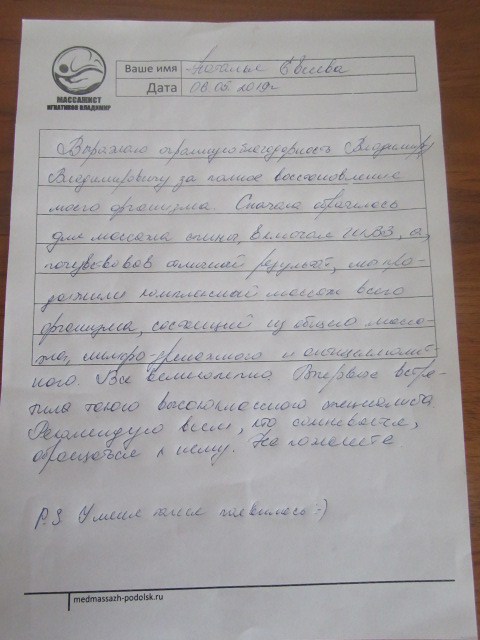 МАССАЖИСТ
ИГНАТИКОВ ВЛАДИМИР
Ваше имя Наталья
Дата 08.05.2019г
Выражаю огромную благодарность Владимиру
Владимировичу за полное восстановление
моего организма. Сначала обратилась
для массажа спины, включая ШВЗ, а,
почувствовав отличный результат, мы про-
должили комплексный массаж всего
организма, состоящий из общего масса-
жа, лимфо-дренажного и антицеллюлит-
ного. Все великолепно. Впервые встре-
тила такого высококлассного специалиста
Рекомендую всем, кто сомневается,
обращаться к нему. Не пожалеете
P.S У меня талия появилась :-)
medmassazh-podolsk.ru